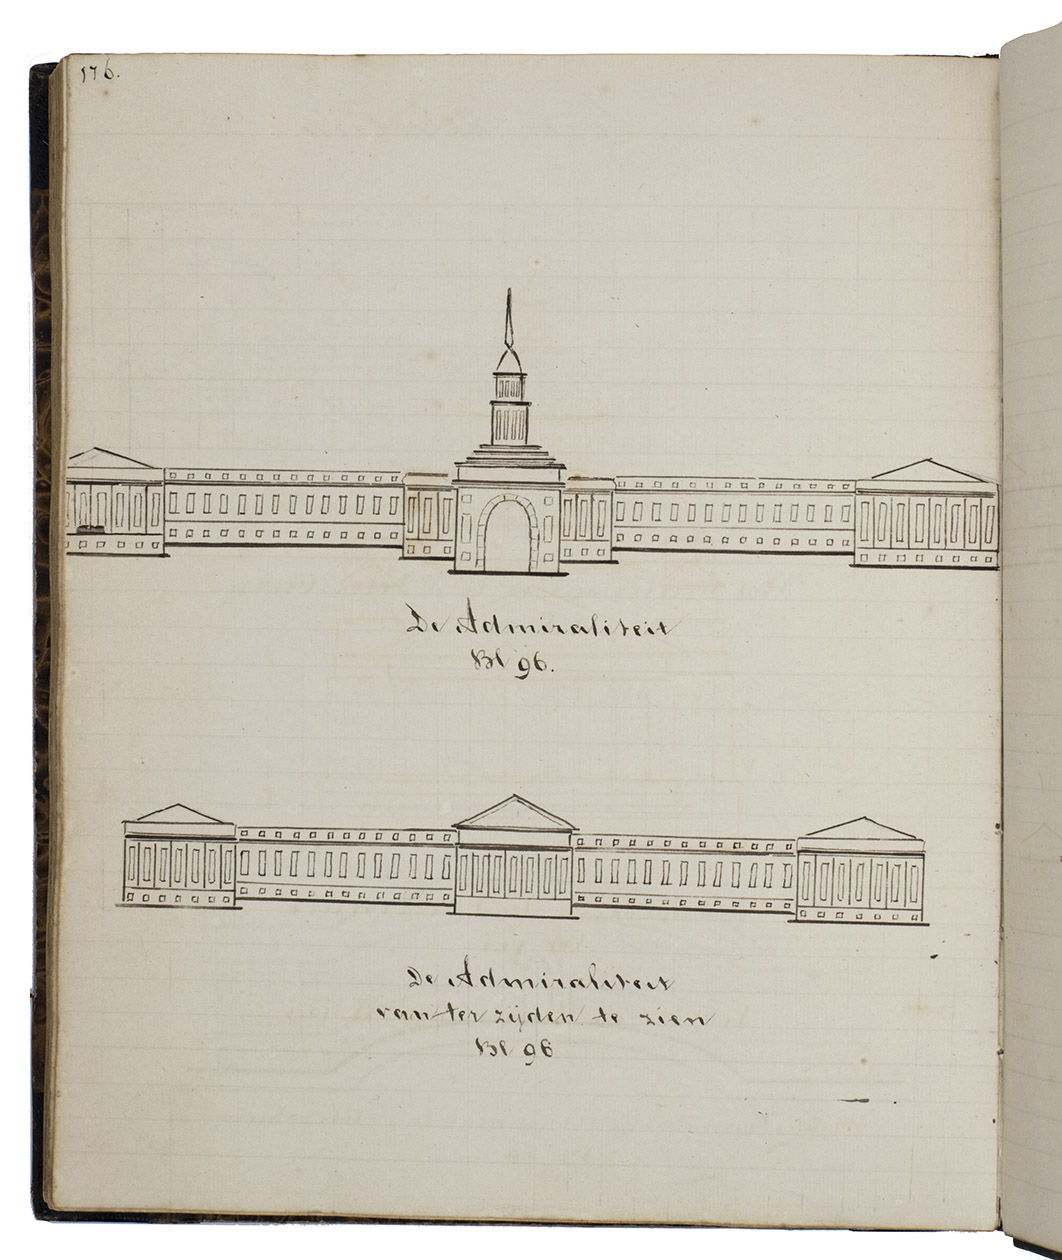 176.
De Admiraliteit
Bl 96.
De Admiraliteit
van ter zijden te zien
Bl 96